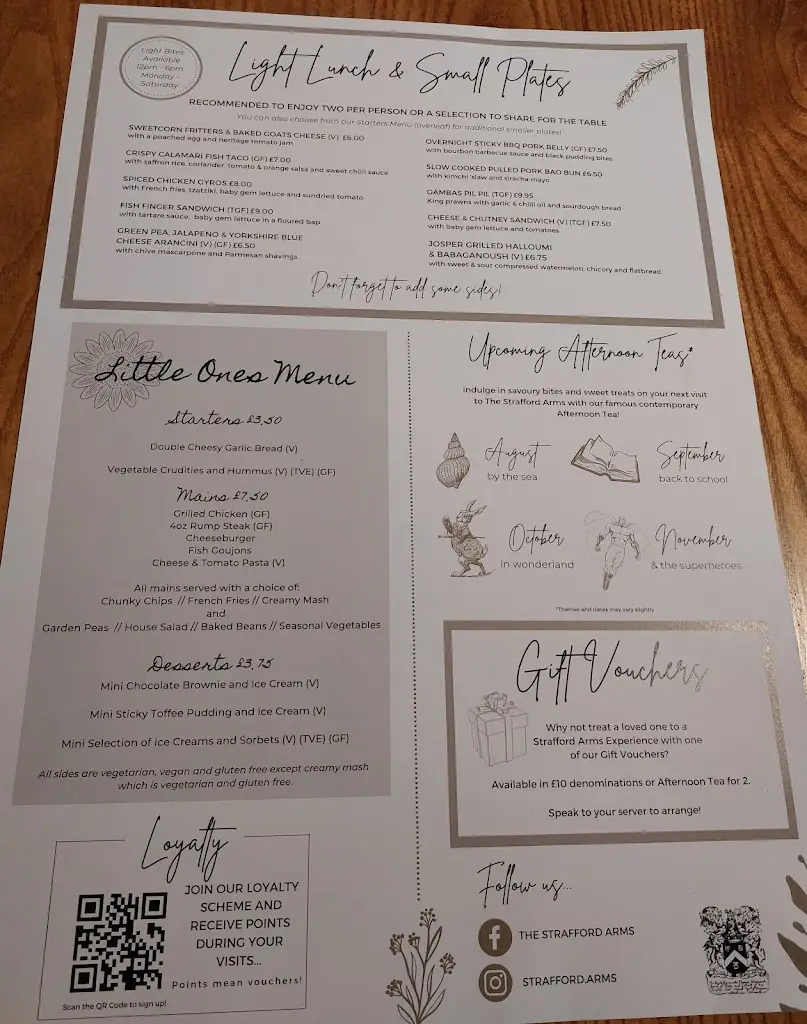 Light Bites
Available
12pm - 6pm
Monday -
Saturday
Light Lunch & Small Plates
RECOMMENDED TO ENJOY TWO PER PERSON OR A SELECTION TO SHARE FOR THE TABLE
You can also choose from our Starters Menu (overleaf) for additional smaller plates!
SWEETCORN FRITTERS & BAKED GOATS CHEESE (V) £6.00
with a poached egg and heritage tomato jam
CRISPY CALAMARI FISH TACO (GF) £7.00
with saffron rice, coriander, tomato & orange salsa and sweet chilli sauce
SPICED CHICKEN GYROS £8.00
with French fries, tzatziki, baby gem lettuce and sundried tomato
FISH FINGER SANDWICH (TGF) £9.00
with tartare sauce, baby gem lettuce in a floured bap
GREEN PEA, JALAPENO & YORKSHIRE BLUE
CHEESE ARANCINI (V) (GF) £6.50
with chive mascarpone and Parmesan shavings
OVERNIGHT STICKY BBQ PORK BELLY (GF) £7.50
with bourbon barbecue sauce and black pudding bites
SLOW COOKED PULLED PORK BAO BUN £6.50
with kimchi 'slaw and siracha mayo
GAMBAS PIL PIL (TGF) £9.95
King prawns with garlic & chilli oil and sourdough bread
CHEESE & CHUTNEY SANDWICH (V) (TGF) £7.50
with baby gem lettuce and tomatoes
JOSPER GRILLED HALLOUMI
& BABAGANOUSH (V) £6.75
with sweet & sour compressed watermelon, chicory and flatbread
Don't forget to add some sides!
Little Ones Menu
Starters £3.50
Double Cheesy Garlic Bread (V)
Vegetable Crudities and Hummus (V) (TVE) (GF)
Mains £7.50
Grilled Chicken (GF)
4oz Rump Steak (GF)
Cheeseburger
Fish Goujons
Cheese & Tomato Pasta (V)
All mains served with a choice of:
Chunky Chips // French Fries // Creamy Mash
and
Garden Peas // House Salad // Baked Beans // Seasonal Vegetables
Desserts £3.75
Mini Chocolate Brownie and Ice Cream (V)
Mini Sticky Toffee Pudding and Ice Cream (V)
Mini Selection of Ice Creams and Sorbets (V) (TVE) (GF)
All sides are vegetarian, vegan and gluten free except creamy mash
which is vegetarian and gluten free.
Upcoming Afternoon Teas*
Indulge in savoury bites and sweet treats on your next visit
to The Strafford Arms with our famous contemporary
Afternoon Tea!
August
by the sea
September
back to school
October
in wonderland
November
& the superheroes
*Themes and dates may vary slightly
Gift Vouchers
Why not treat a loved one to a
Strafford Arms Experience with one
of our Gift Vouchers?
Available in £10 denominations or Afternoon Tea for 2.
Speak to your server to arrange!
Loyalty
JOIN OUR LOYALTY
SCHEME AND
RECEIVE POINTS
DURING YOUR
VISITS...
Points mean vouchers!
Scan the QR Code to sign up!
Follow us...
THE STRAFFORD ARMS
STRAFFORD.ARMS